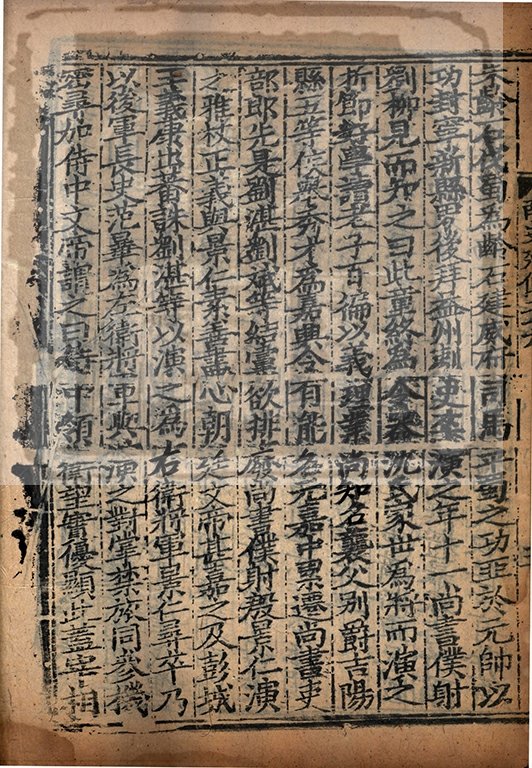 朱齡石伐蜀為齡石建威府司馬平蜀之功亞於元帥以
功封寧新縣男後拜益州刺史卒演之年十一尚書僕射
劉柳見而知之曰此童終為令器沈氏家世為將而演之
折節好學讀老子百徧以義理業尚知名襲父別爵吉陽
縣五等侯舉秀才為嘉興令有能名元嘉中累遷尚書吏
部郎先是劉湛劉斌等結黨欲排廢尚書僕射殷景仁演
之雅杖正義與景仁素善盡心朝廷文帝甚嘉之及彭城
王義康出蕃誅劉湛等以演之為右衛將軍景仁尋卒乃
以後軍長史范曄為左衛將軍與演之對掌禁旅同參機
密尋加侍中文帝謂之曰侍中領衛望實優顯此蓋宰相